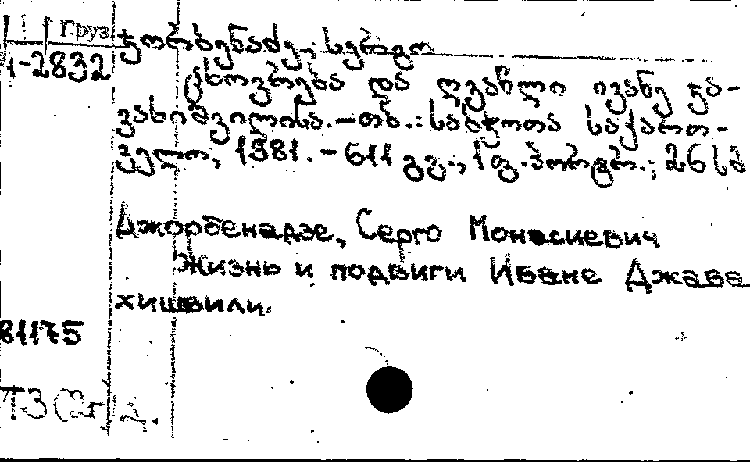 Груз
1-2832 ჯორბენაძე, სერგო
ცხოვრება და ღვაწლი ივანე ჯა-
ვახიშვილისა.–თბ.: საბჭოთა საქართ-
ველო, 1981.–611 გვ., 1 ფ. პორტრ.; 26 სმ
Джорбенадзе, Серго Монасиевич
Жизнь и подвиги Иване Джава
хишвили.
81175